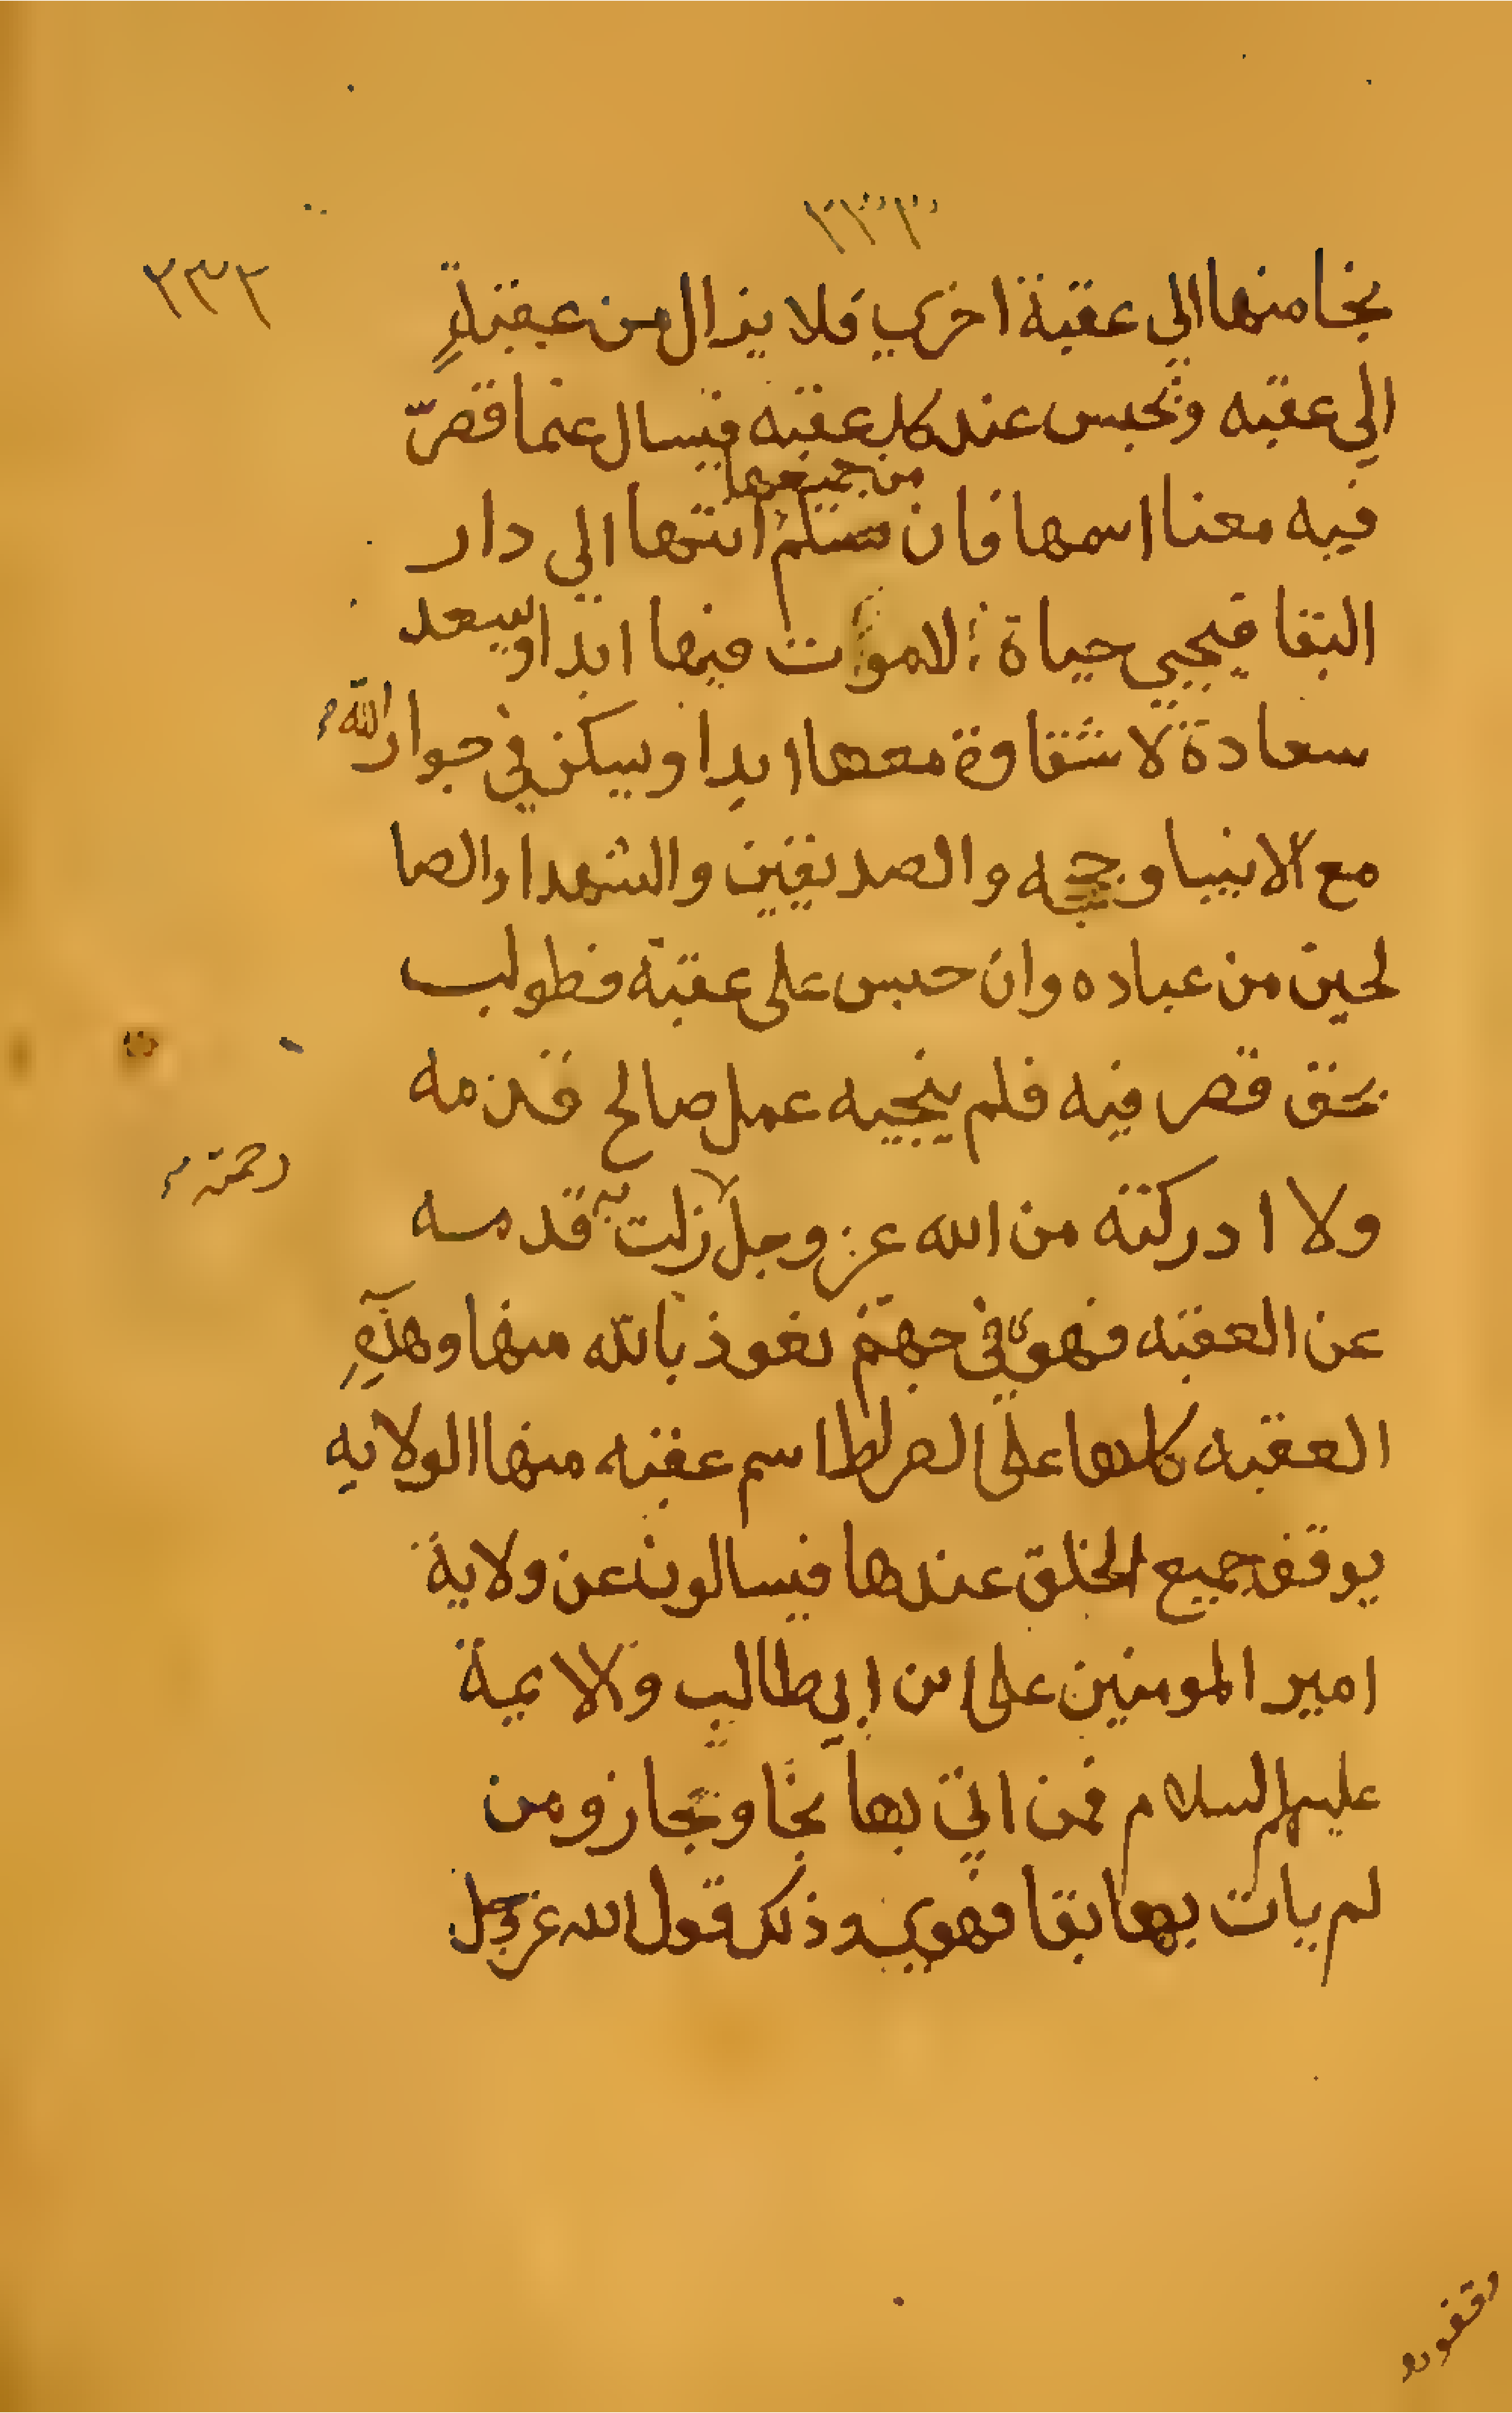 ٢٣٣
٢٣٢
نجا منها الى عقبة اخرى فلا يزال من عقبةٍ
الى عقبه وتحبس عند كل عقبه فيسال عنما قصّر
من جميعها
فيه معنا اسمها فان سلم انتها الى دار
البقا فيحيى حياة لا موت فيها ابدا ويسعد
سعادة لا شقاوة معها ابدا ويسكن في جوار الله
مع الانبيا وحججه والصديقين والشهدا والصا
لحين من عباده وان حبس على عقبة فطولب
بحق قصر فيه فلم ينجيه عمل صالح قدمه
رحمة
ولا ادركته من الله عز وجل زلت به قدمه
عن العقبه فهوى في جهنم نعوذ بالله منها وهذهِ
العقبه كلها على الصراط اسم عقبه منها الولايه
يوقف جميع الخلق عندها فيسالون عن ولاية
امير المومنين على بن ابي طالب والايمة
عليهم السلام فمن اتى بها نجا وتجاز ومن
لم يات بها بقا فهوى وذلك قول الله عز وجل
وقفوهم